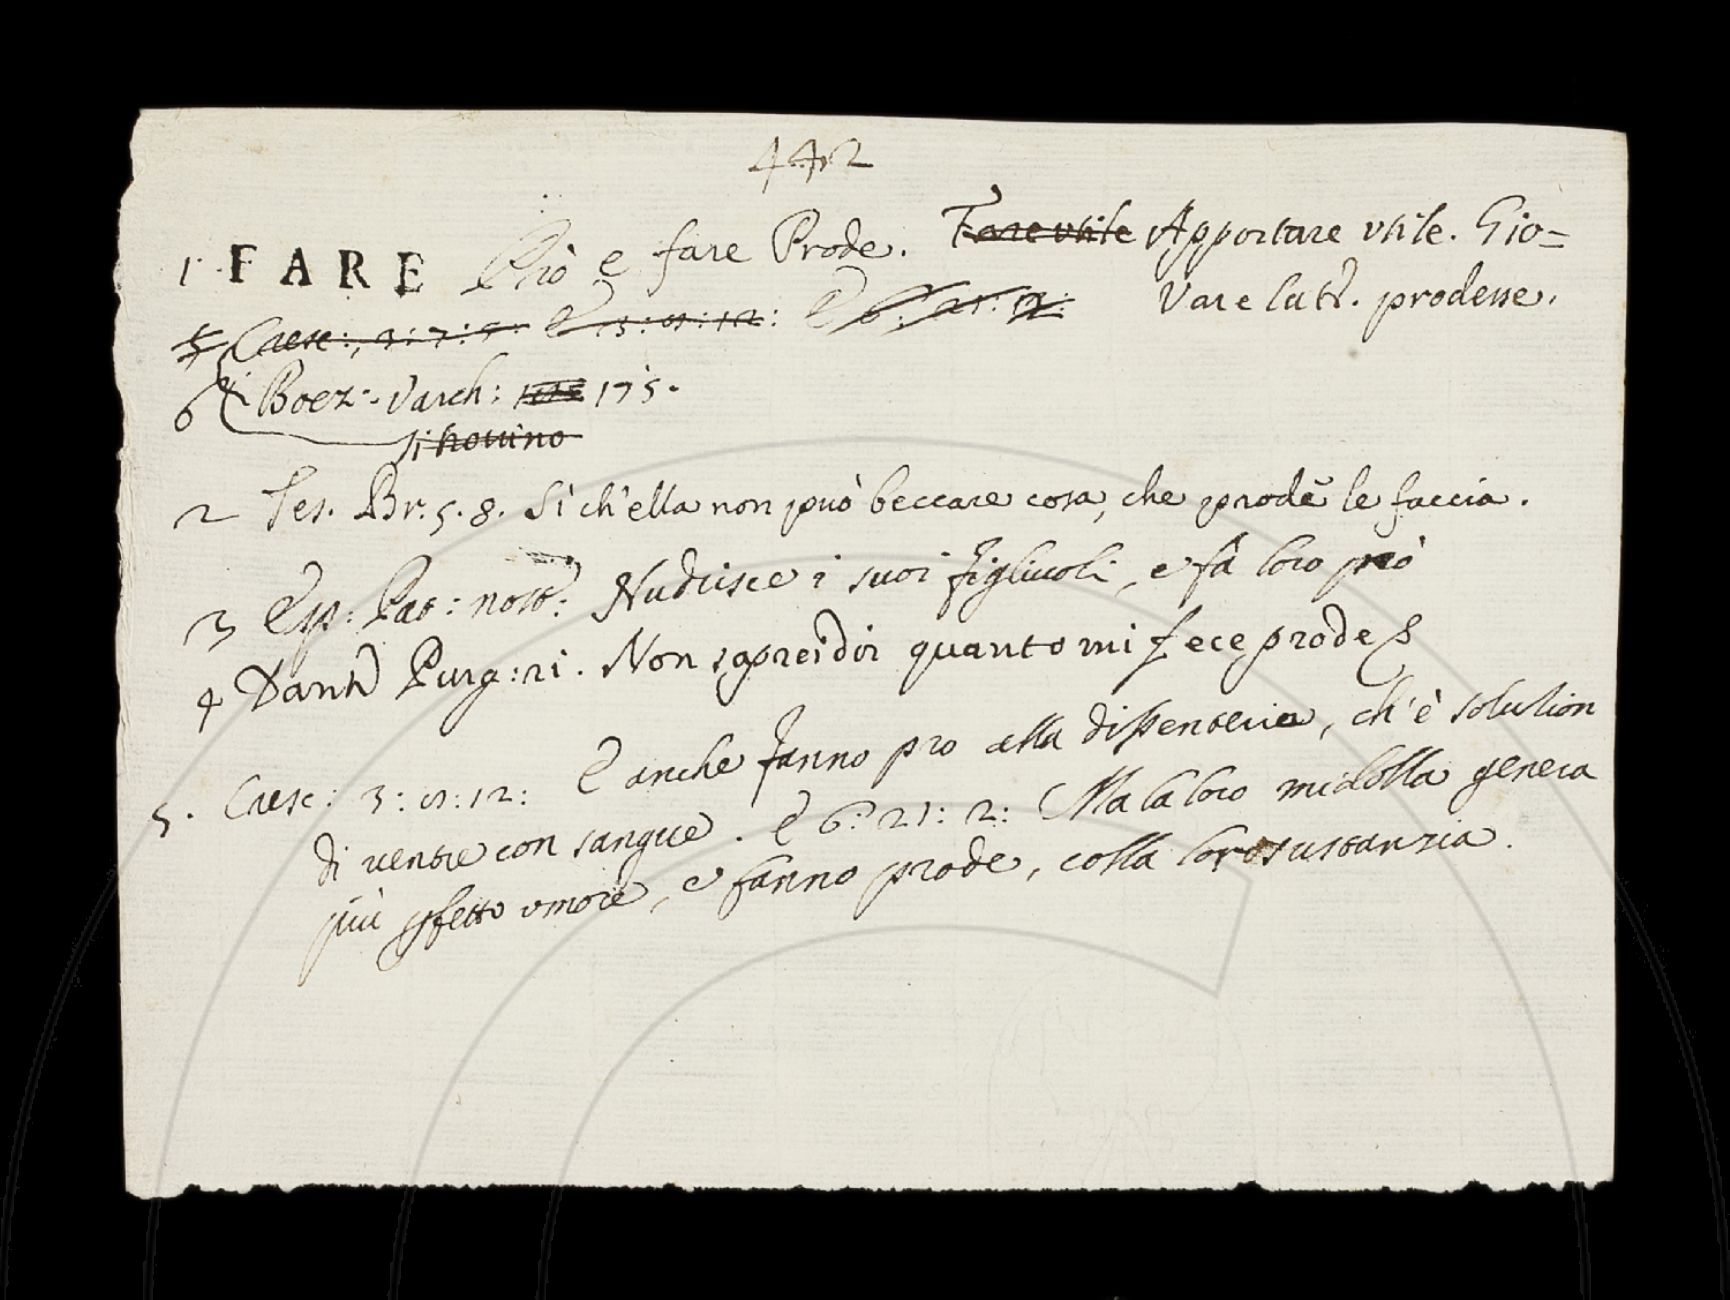 442
1. FARE Prò e fare Prode. Fare utile Apportare utile. Gio=
vare latt. prodesse.
5 Cresc:, 3:7:5: E 3:8:12: E 6: 21: 2:
6 Boez. Varch: 175.
si
2 Tes. Br. 5. 8. Sì ch'ella non può beccare cosa, che prode le faccia.
3 Esp: Pat: nost: Nudrisce i suoi figliuoli, e fà loro prò
4 Dant Purg: 21. Non saprei dir quanto mi fece prode
5. Cresc: 3: 8: 12: E anche fanno pro alla dissenteria, ch'è solution
di ventre con sangue. E 6: 21: 2: Ma la loro midolla genera
più pfetto umore, e fanno prode, colla loro sustanzia.